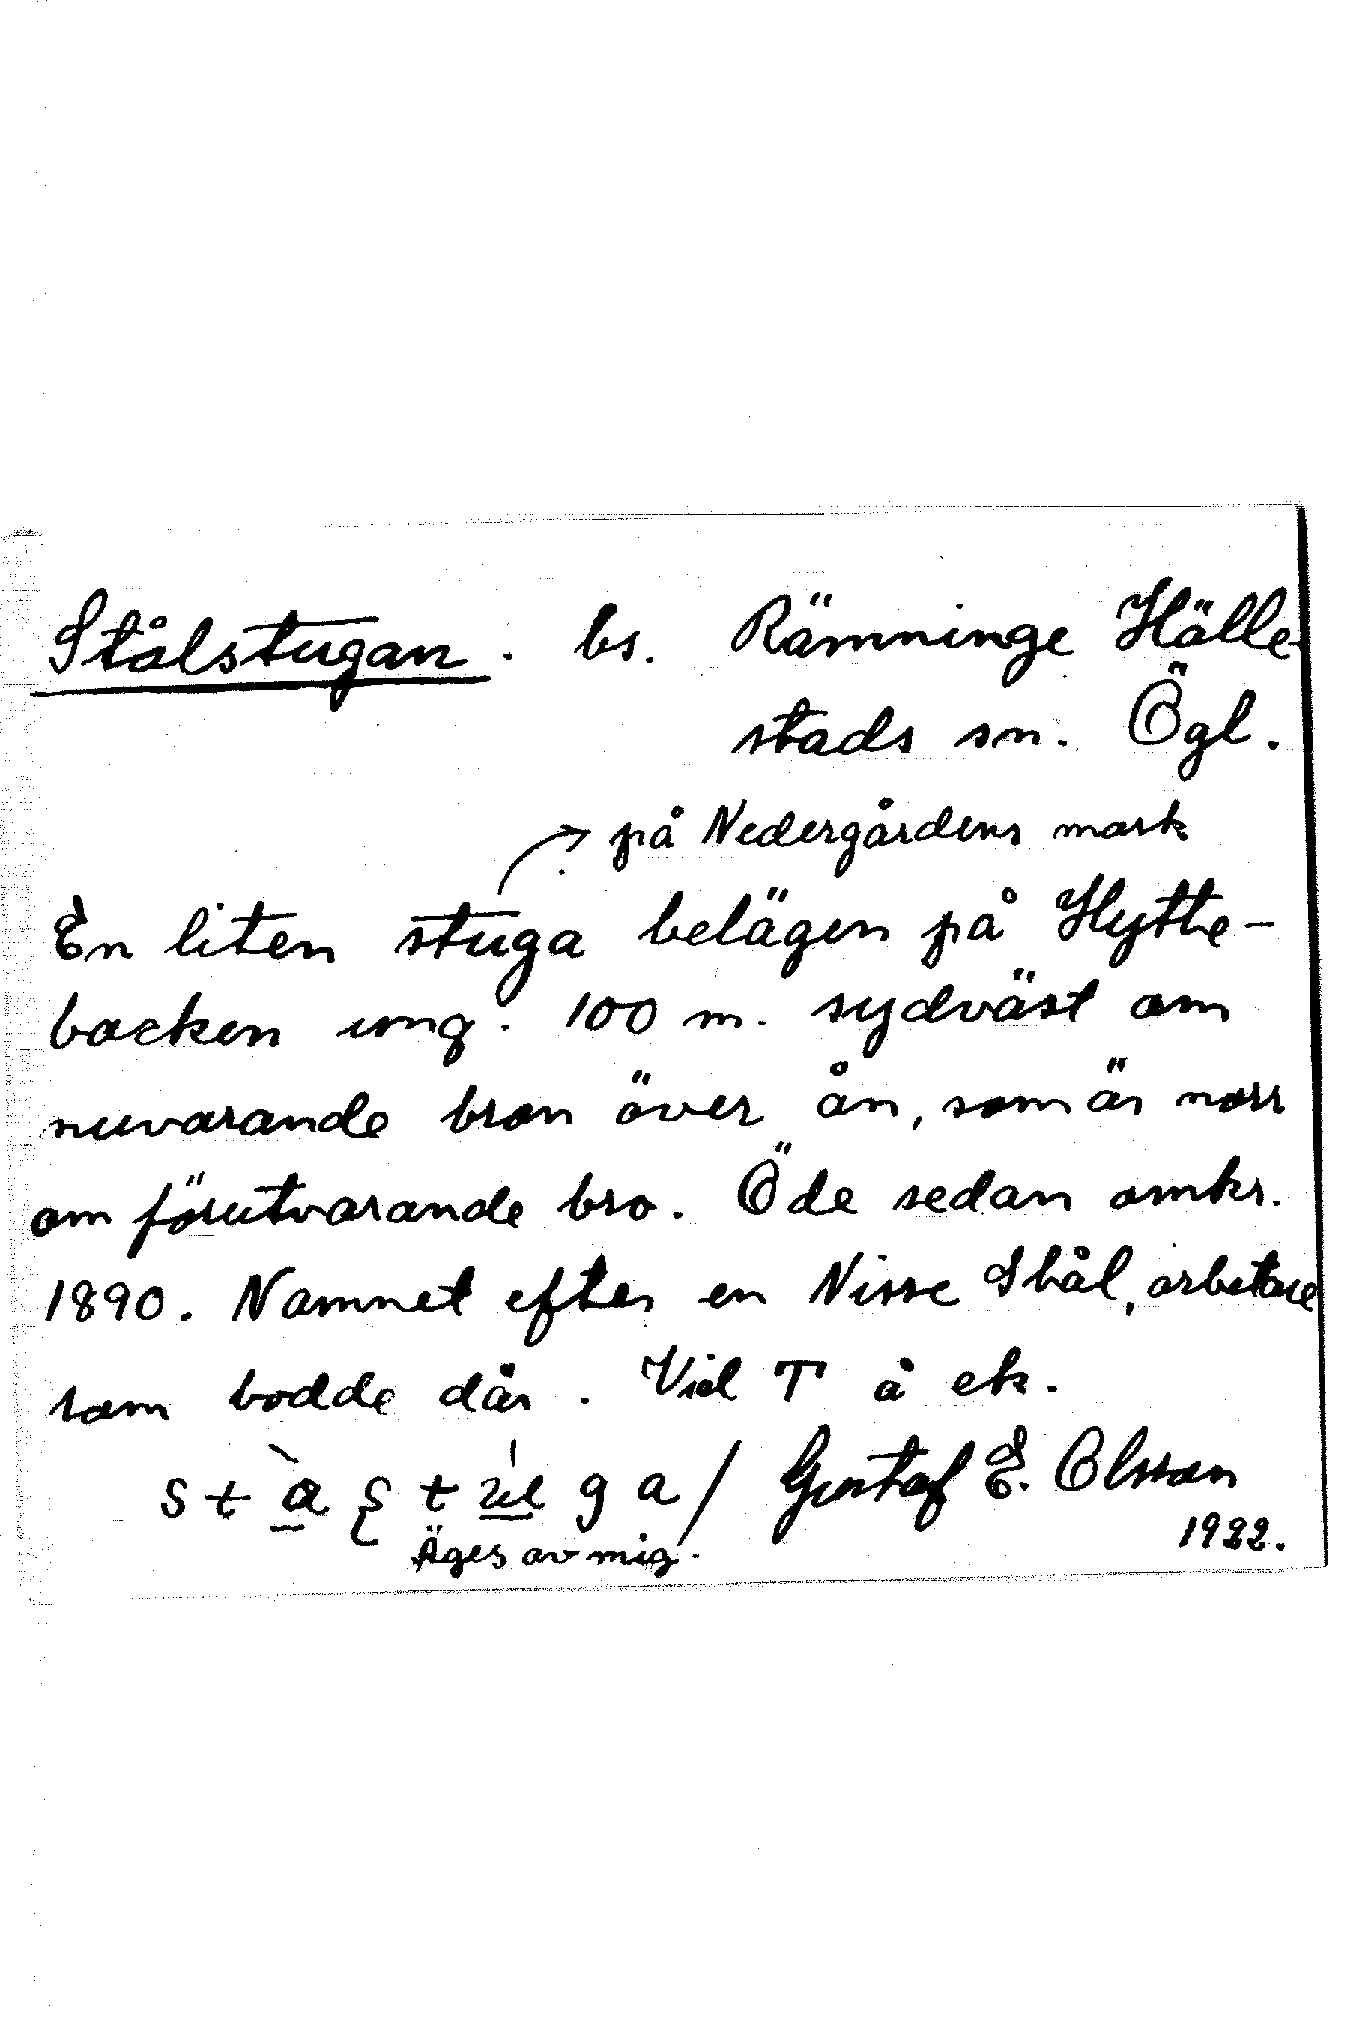 Stålstugan. bs. Rämninge Hälle-
stads sn. Ögl.
på Nedergårdens mark
En liten stuga belägen på Hytte-
backen ung. 100 m. sydväst om
nuvarande bron över ån, som är norr
om förutvarande bro. Öde sedan omkr.
1890. Namnet efter en Nisse Stål, arbetare
som bodde där. Vid T å ek.
Gustaf E. Olsson
Äges av mig.
1922.